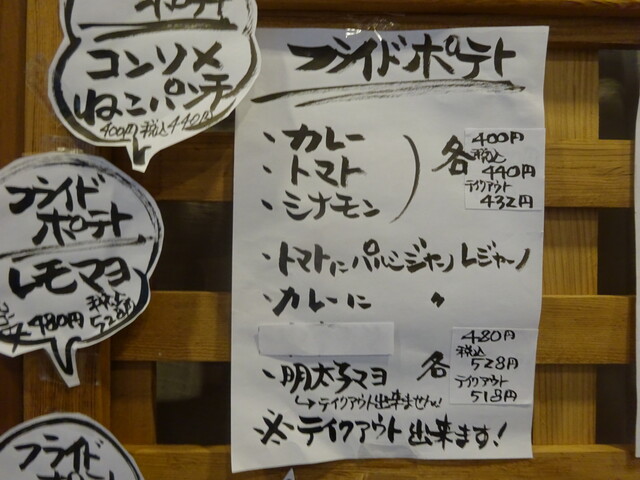 ポテト
コンソメ
ねこパンチ
400円 税込440円
フライド
ポテト
レモマヨ
480円
税込
528円
フライド
フライドポテト
・カレー
・トマト
・シナモン
各
400円
税込
440円
テイクアウト
432円
・トマトにパルミジャーノレジャーノ
・カレーに 〃
・明太子マヨ
各
480円
税込
528円
テイクアウト
518円
↳テイクアウト出来ません!
※テイクアウト出来ます!